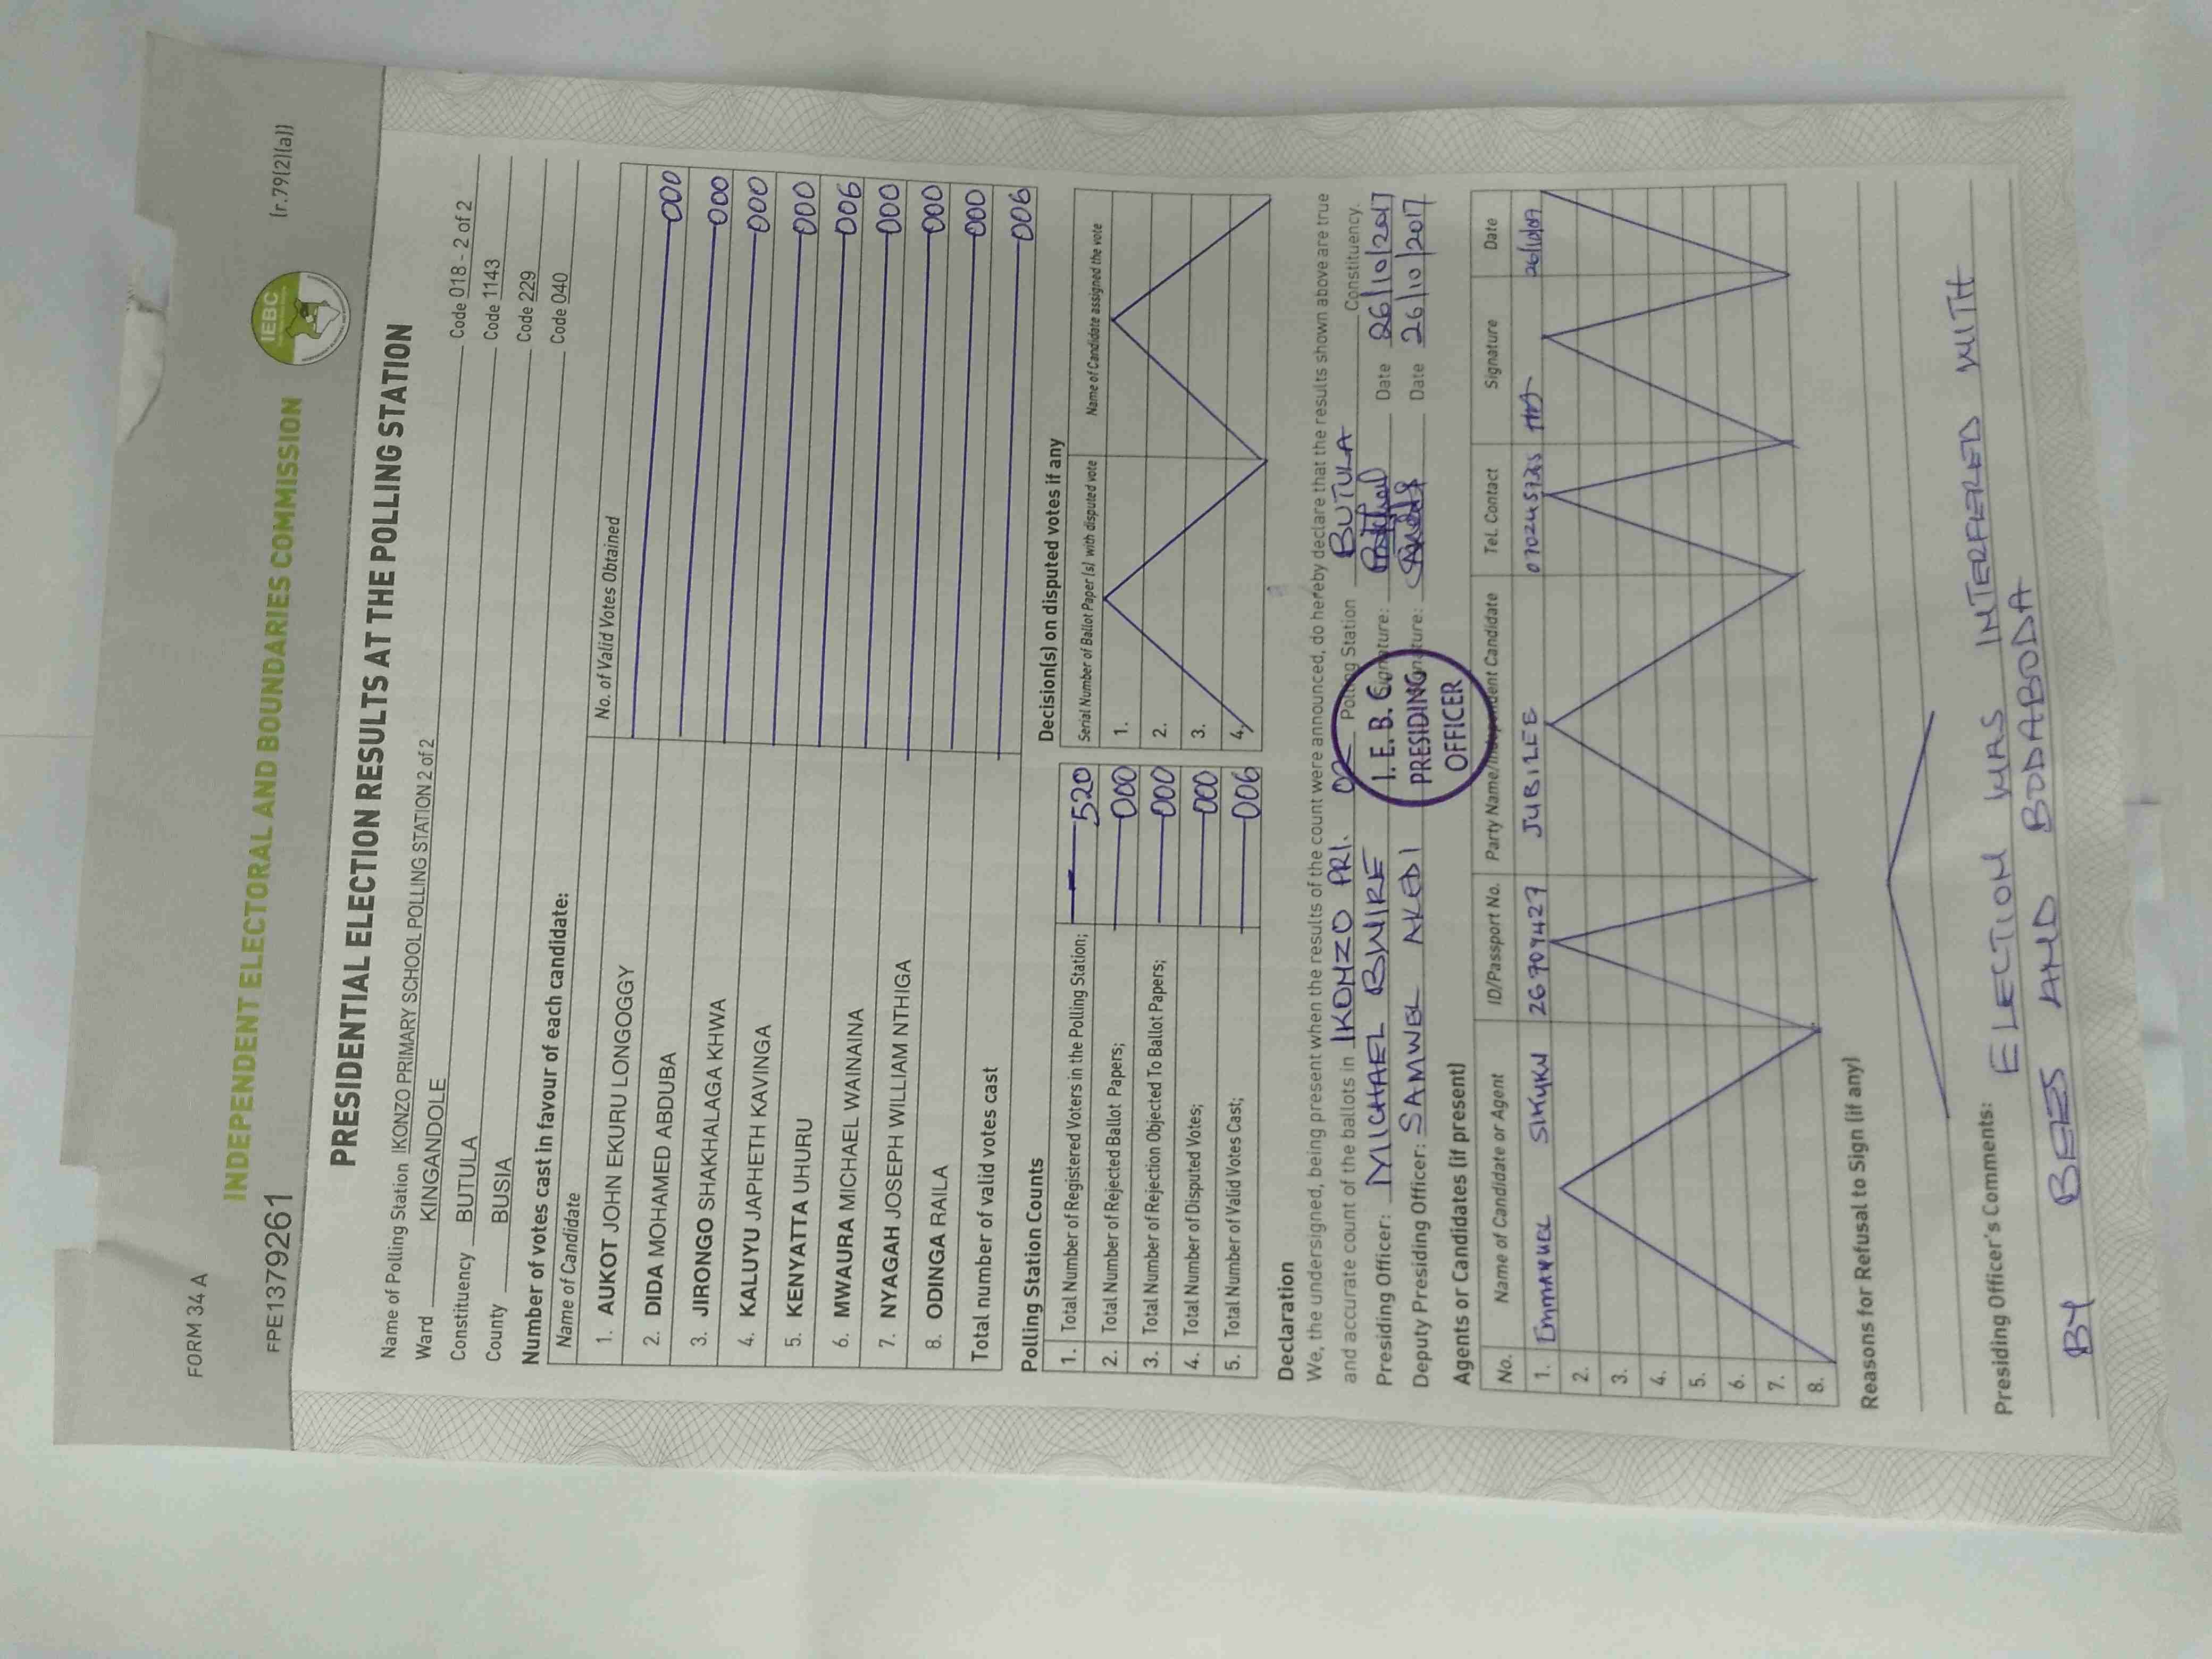 FORM 34 A
(r.79(2)(a))
FPE1379261
INDEPENDENT ELECTORAL AND BOUNDARIES COMMISSION
IEBC
PRESIDENTIAL ELECTION RESULTS AT THE POLLING STATION
Name of Polling Station IKONZO PRIMARY SCHOOL POLLING STATION 2 of 2 Code 018 - 2 of 2
Ward KINGANDOLE Code 1143
Constituency BUTULA Code 229
County BUSIA Code 040
Number of votes cast in favour of each candidate:
Name of Candidate No. of Valid Votes Obtained
1. AUKOT JOHN EKURU LONGOGGY 000
2. DIDA MOHAMED ABDUBA 000
3. JIRONGO SHAKHALAGA KHWA 000
4. KALUYU JAPHETH KAVINGA 000
5. KENYATTA UHURU 006
6. MWAURA MICHAEL WAINAINA 000
7. NYAGAH JOSEPH WILLIAM NTHIGA 000
8. ODINGA RAILA 000
Total number of valid votes cast 006
Polling Station Counts
1. Total Number of Registered Voters in the Polling Station; 520
2. Total Number of Rejected Ballot Papers; 000
3. Total Number of Rejection Objected To Ballot Papers; 000
4. Total Number of Disputed Votes; 000
5. Total Number of Valid Votes Cast; 006
Decision(s) on disputed votes if any
Serial Number of Ballot Paper (s) with disputed vote Name of Candidate assigned the vote
1.
2.
3.
4.
Declaration
We, the undersigned, being present when the results of the count were announced, do hereby declare that the results shown above are true
and accurate count of the ballots in IKONZO PRI. 02 Polling Station BUTULA Constituency.
Presiding Officer: MICHAEL BWIRE Signature: Date 26/10/2017
Deputy Presiding Officer: SAMWEL AKEDI Signature: Date 26/10/2017
I.E.B.C.
PRESIDING
OFFICER
Agents or Candidates (if present)
No. Name of Candidate or Agent ID/Passport No. Party Name/Independent Candidate Tel. Contact Signature Date
1. EMMANUEL SIKUKU 267094427 JUBILEE 0702457325
2.
3.
4.
5.
6.
7.
8.
Reasons for Refusal to Sign (if any)
Presiding Officer's Comments: ELECTION WAS INTERFERED WITH
BY BEES AND BODABODA